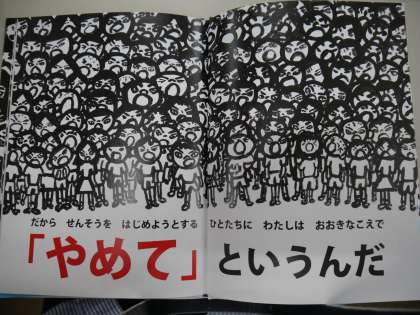 だから せんそうを はじめようとする ひとたちに わたしは おおきなこえで
「やめて」というんだ